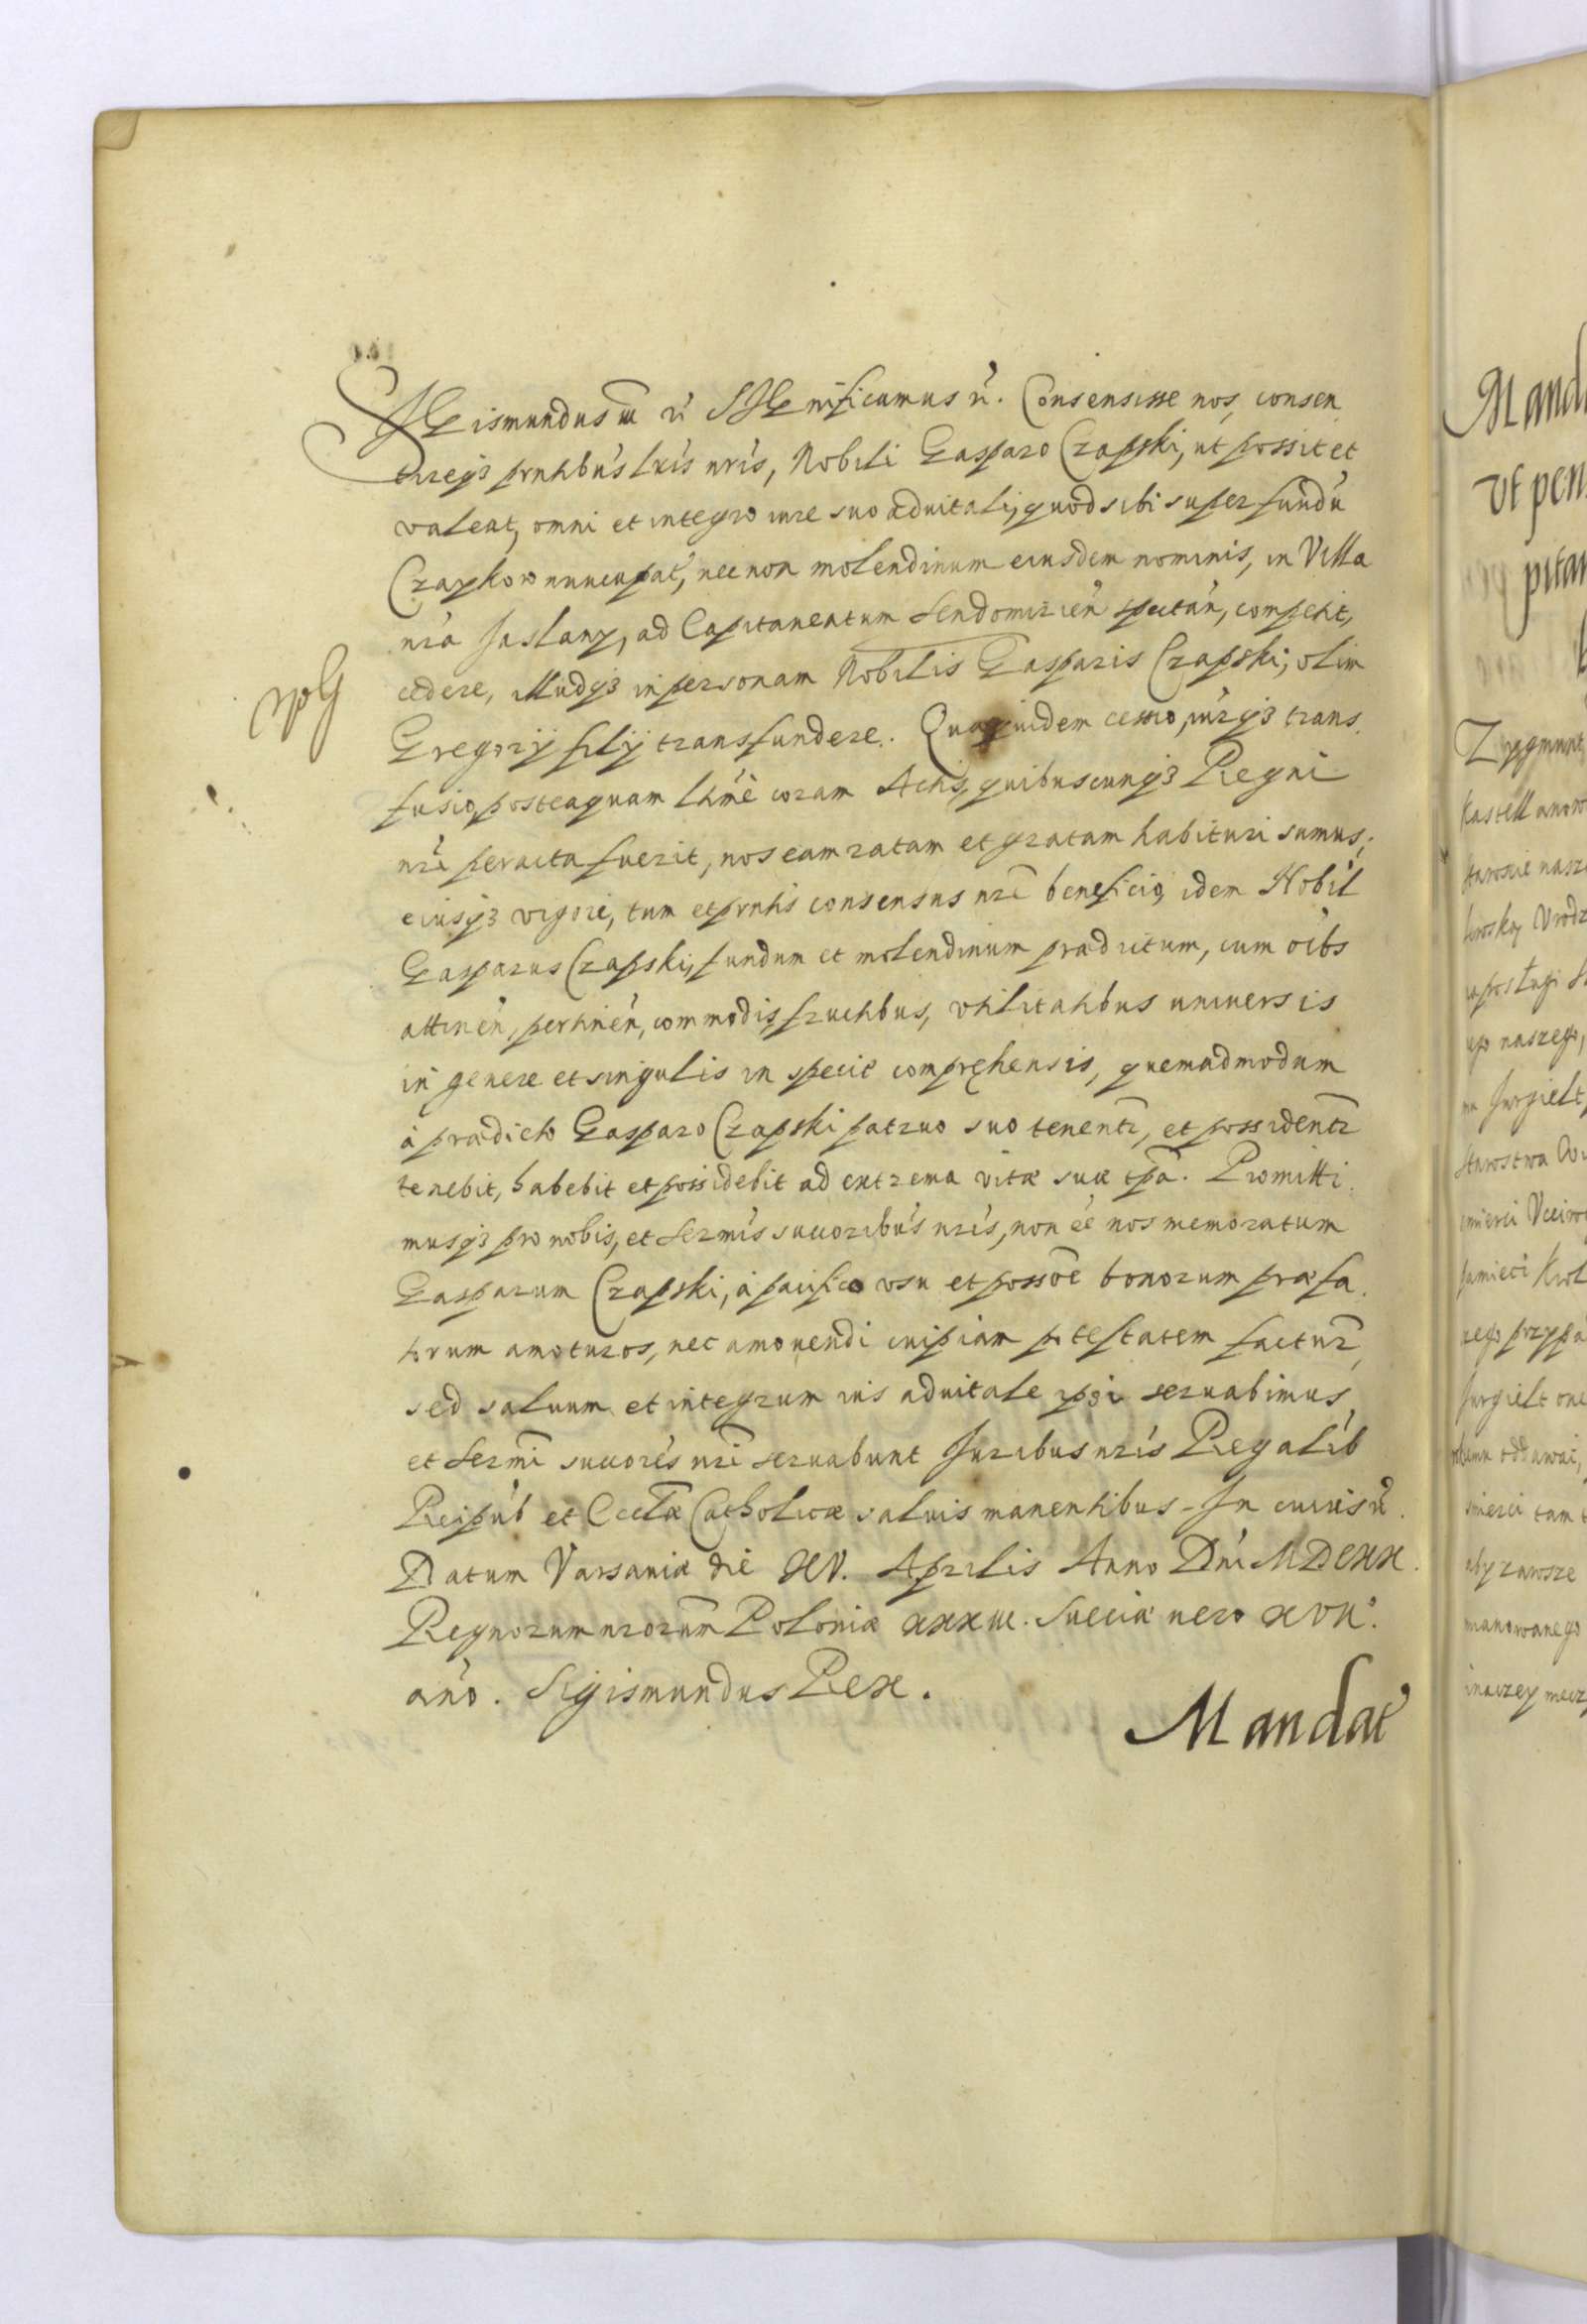 SIGismundus III etc. SIGnificamus etc. Consensisse nos, consen
tireq3 pnntibus lris nris, Nobili Gasparo Czapski, ut possit et
valeat, omni et integro iure suo aduitali, quod sibi super fundũ
Czapkow nuncupat, necnon molendinum eiusdem nominis, in Villa
nra Jaslany, ad Capitaneatum Sendomirien spectan, competit,
cedere, illudq3 in personam Nobilis Gasparis Czapski, olim
Gregorij filij transfundere. Quaquidem cessio, iurisq3 trans
fusio, posteaquam litime coram Actis, quibuscunq3 Regni
nri peracta fuerit, nos eam ratam et gratam habituri sumus,
eiusq3 vigore, tum et pntis consensus nri beneficio, idem Nobil
Gasparus Czapski, fundum et molendinum prædictum, cum oibs
attinen, pertinen, commodis, fructibus, vtilitatibus universis
in genere et singulis in specie comprehensis, quemadmodum
à prædicto Gasparo Czapski patruo suo tenentr, et possidentr
tenebit, habebit et possidebit ad extrema vitæ suæ tpa. Promitti
musq3 pro nobis, et Sermis succoribus nris, non ee nos memoratum
Gasparum Czapski, à pacifico vsu et possoe bonorum præfa
torum amoturos, nec amovendi cuipiam potestatem factur,
sed saluum et integrum ius aduitale ipsi seruabimus,
et Sermi succores nri seruabunt Juribus nris Regalib
Reipub et Eccla Catholicæ saluis manentibus. In cuius etc.
Datum Varsaniæ die XV. Aprilis Anno Dni MDCXX.
Regnorum nrorum Poloniæ XXXIII. Sueciæ vero XXVII.
ano. Sigismundus Rex.
Mandat
Mand
vt pen
pitan
Zygmunt